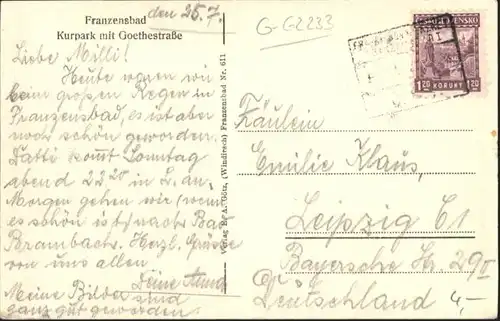 Franzensbad
Kurpark mit Goethestraße
den 25.7.
Liebe Milli!
Heute waren wir
beim großen Regen in
Franzensbad, es ist aber
noch schön geworden.
Vatti kommt Sonntag
abend 22,20 in L. an.
Morgen gehen wir (wenn
es schön ist) nach Bad
Brambach. Herzl. Grüße
von uns allen
Deine Anna
Meine Bilder sind
ganz gut geworden.
Verlag (Windirsch) Franzensbad Nr. 611
G-G2233
1.20 KORUNY 1.20
Fräulein
Emilie Klaus,
Leipzig C1
Bayersche Str. 29
Deutschland
4,-